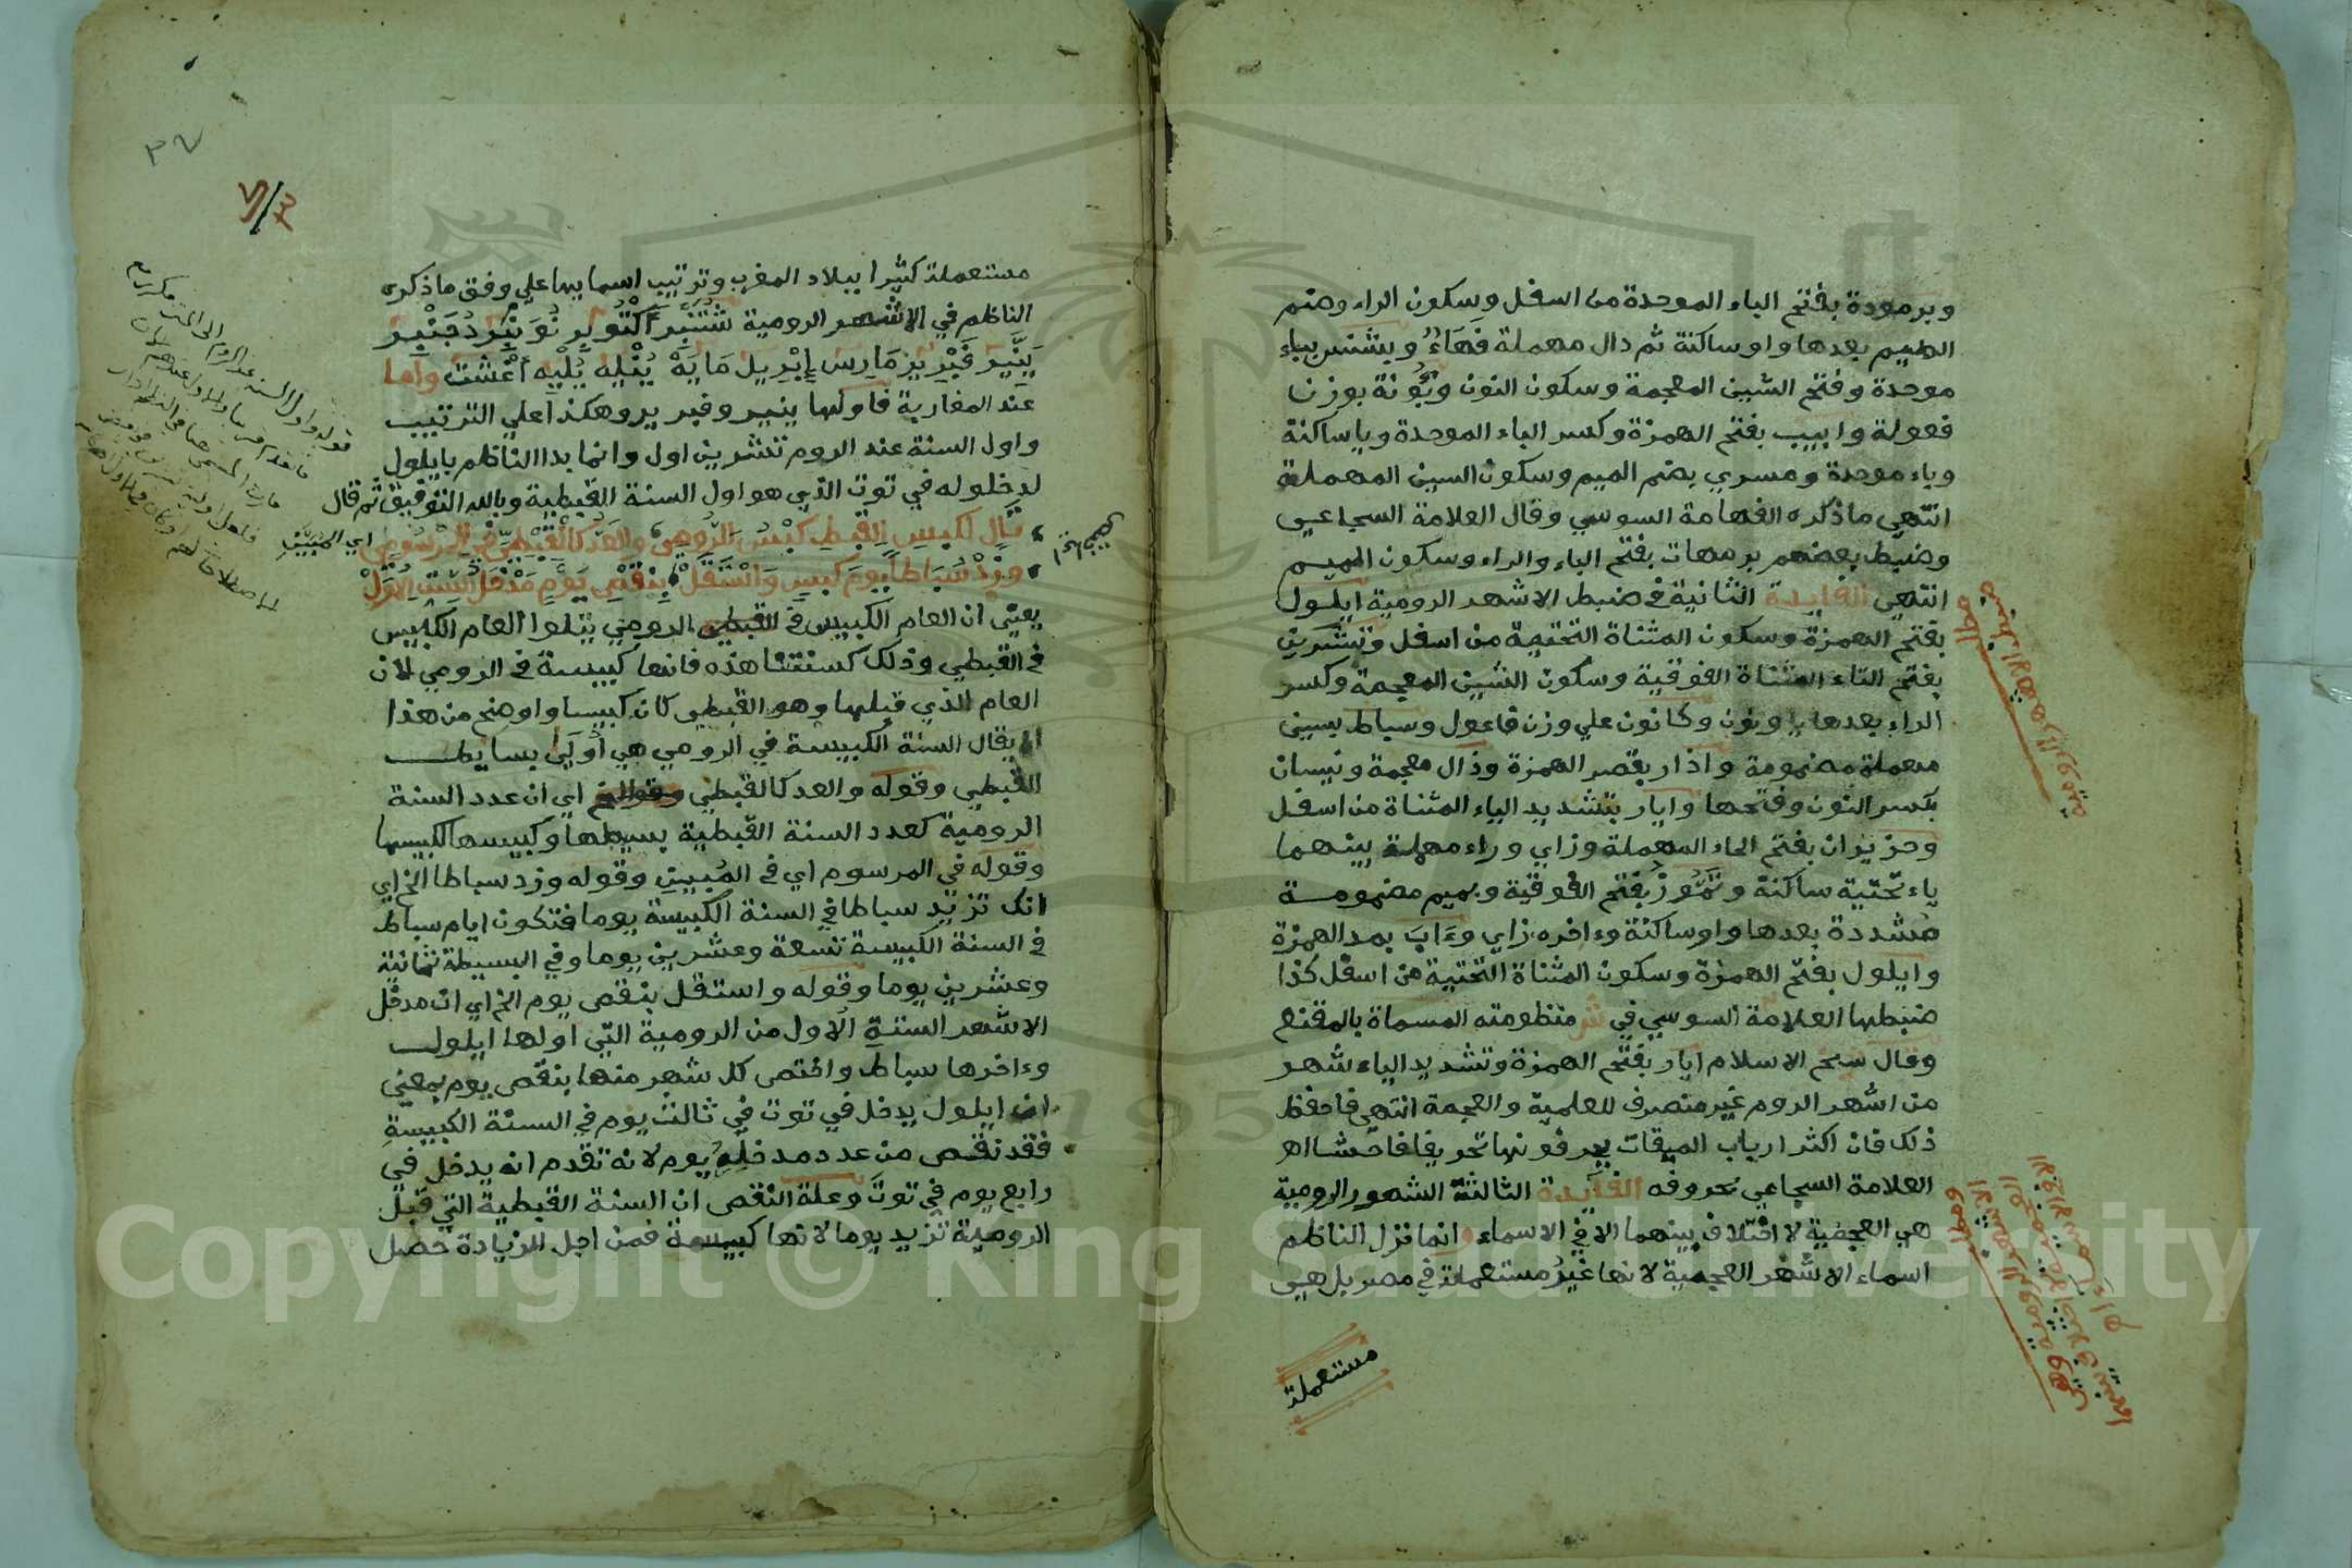 وبرمودة بفتح الباء الموحدة من اسفل وسكون الراء وضم
الميم بعدها واو ساكنة ثم دال مهملة فهاء وبشنس بباء
موحدة وفتح الشين المعجمة وسكون النون وبؤنة بوزن
فعولة وابيب بفتح الهمزة وكسر الباء الموحدة ويا ساكنة
وباء موحدة ومسري بضم الميم وسكون السين المهملة
انتهي ما ذكره الفهامة السوسي وقال العلامة السجاعي
وضبط بعضهم برمهات بفتح الباء والراء وسكون الميم
انتهي الفايدة الثانية في ضبط الاشهر الرومية ايلول
بفتح الهمزة وسكون المثناة التحتية من اسفل وتشرين
بفتح التاء المثناة الفوقية وسكون الشين المعجمة وكسر
الراء بعدها يا ونون وكانون علي وزن فاعول وسباط بسين
مهملة مضمومة واذار بقصر الهمزة وذال معجمة ونيسان
بكسر النون وفتحها وايار بتشديد الياء المثناة من اسفل
وحزيران بفتح الحاء المهملة وزاي وراء مهملة بينهما
ياء تحتية ساكنة وتموز بفتح الفوقية وبميم مضمومة
مشددة بعدها واو ساكنة وءاخره زاي وءاب بمد الهمزة
وايلول بفتح الهمزة وسكون المثناة التحتية من اسفل كذا
ضبطها العلامة السوسي في شر منظومته المسماة بالمقنع
وقال سيخ الاسلام ايار بفتح الهمزة وتشديد الياء شهر
من اشهر الروم غير منصرف للعلمية والعجمة انتهي فاحفظ
ذلك فان اكثر ارباب الميقات يحرفونها تحريفا فاحشا اه
العلامة السجاعي بحروفه الفايدة الثالثة الشهور الرومية
هي العجمية لا اختلاف بينهما الا في الاسماء وانما نزل الناظم
اسماء الاشهر العجمية لانها غير مستعملة في مصر بل هي
مستعملة
مطل
ضبط الاشهر الرومية
ومطل
الاشهر الرومية وهي
مستعملة كثيرا ببلاد المغرب وترتيب اسمايها علي وفق ما ذكره
الناظم في الاشهر الرومية شتنبر اكتوبر نونبر دجنبر
ينير فبرير مارس ابريل مايه ينليه يليه اغشت واما
عند المغاربة فاولها ينير وفبرير وهكذا علي الترتيب
واول السنة عند الروم تشرين اول وانما بدا الناظم بايلول
لدخلوله في توت الذي هو اول السنة القبطية وبالله التوفيق ثم قال
تال لكبيس القبط كبس الرومي والعد كالقبطي في المرسوم
اي المبين
وزد سباطا يوم كبس واستقل بنقص يوم مدخل الست الاول
يعني ان العام الكبيس في القبطي الرومي يتلوا العام الكبيس
في القبطي وذلك كسنتنا هذه فانها كبيسة في الرومي لان
العام الذي قبلها وهو القبطي كان كبيسا واوضح من هذا
ان يقال السنة الكبيسة في الرومي هي اولي بسايط
القبطي وقوله والعد كالقبطي وقوله في اي ان عدد السنة
الرومية كعدد السنة القبطية بسيطها وكبيسها ككبيسها
وقوله في المرسوم اي في المبين وقوله وزد سباطا الخ اي
انك تزيد سباطا في السنة الكبيسة يوما فتكون ايام سباط
في السنة الكبيسة تسعة وعشرين يوما وفي البسيطة ثمانية
وعشرين يوما وقوله واستقل بنقص يوم الخ اي ان مدخل
الاشهر الستة الاول من الرومية التي اولها ايلول
وءاخرها سباط واختص كل شهر منها بنقص يوم بمعني
ان ايلول يدخل في توت في ثالث يوم في السنة الكبيسة
فقد نقص من عدد مدخله يوم لانه تقدم انه يدخل في
رابع يوم في توت وعلة النقص ان السنة القبطية التي قبل
الرومية تزيد يوما لانها كبيسة فمن اجل الزيادة حصل
قوله واول السنة عند الروم الي اخره
Copyright © King Saud University
195